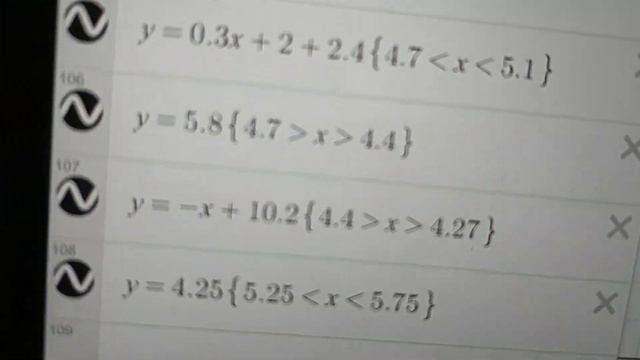 y = 0.3x + 2 + 2.4{4.7 < x < 5.1}
106
y = 5.8{4.7 > x > 4.4}
107
y = −x + 10.2{4.4 > x > 4.27}
108
y = 4.25{5.25 < x < 5.75}
109